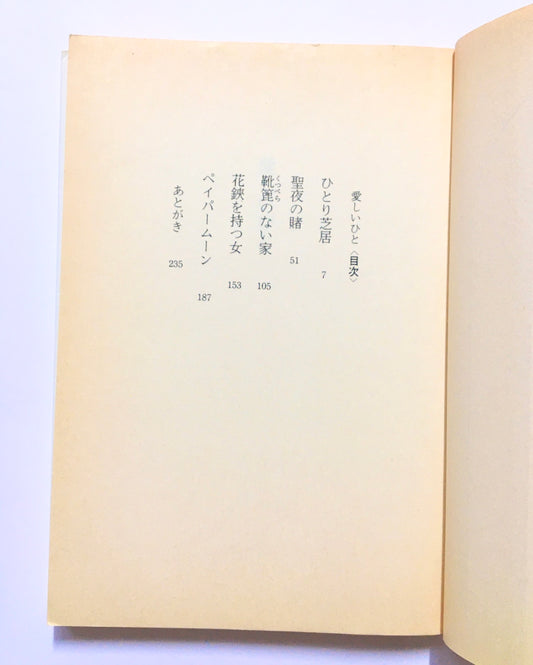 愛しいひと〈目次〉
ひとり芝居 7
聖夜の賭 51
靴篦のない家 105
くつべら
花鋏を持つ女 153
ペイパームーン 187
あとがき 235